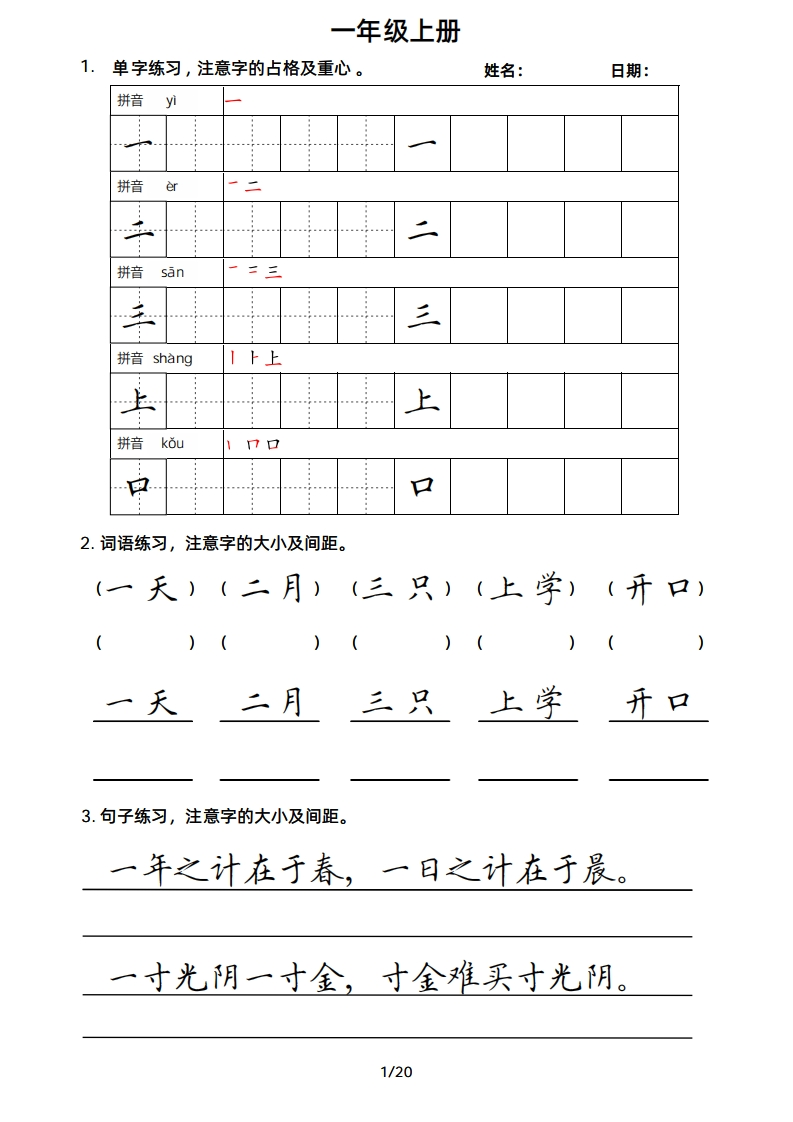 一年级上册
1. 单字练习，注意字的占格及重心。 姓名： 日期：
拼音 yì 一
一 一
拼音 èr 一 二
二 二
拼音 sān 一 二 三
三 三
拼音 shàng 丨 ⺊ 上
上 上
拼音 kǒu 丨 冂 口
口 口
2. 词语练习，注意字的大小及间距。
（一天）（二月）（三只）（上学）（开口）
（ ）（ ）（ ）（ ）（ ）
一天 二月 三只 上学 开口
3. 句子练习，注意字的大小及间距。
一年之计在于春，一日之计在于晨。
一寸光阴一寸金，寸金难买寸光阴。
1/20